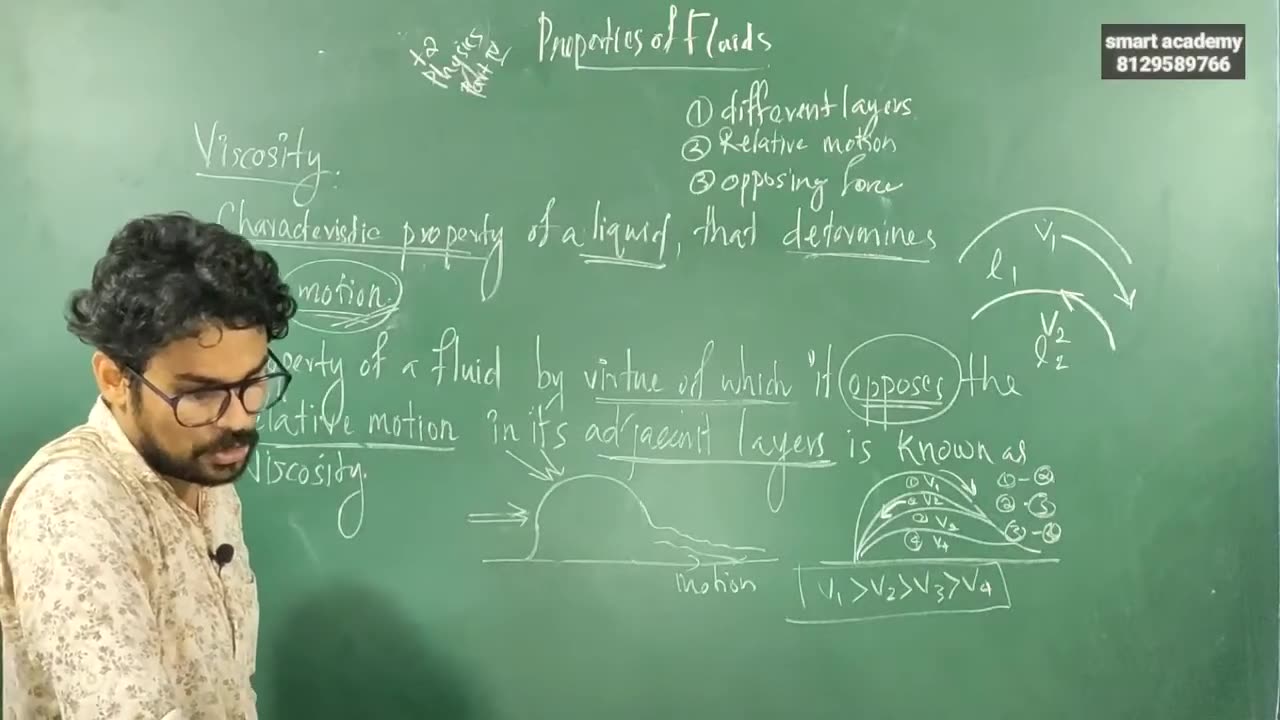 Properties of Fluids
+2
Physics
smart academy
8129589766
① different layers
② Relative motion
③ opposing force
Viscosity.
Characteristic property of a liquid, that determines
motion.
operty of a fluid by virtue of which it opposes the
elative motion in its adjacent layers is known as
Viscosity.
V₁
l₁
V₂
l₂
motion
① V₁
② V₂
③ V₃
④ V₄
① - ②
② - ③
③ - ④
V₁ > V₂ > V₃ > V₄